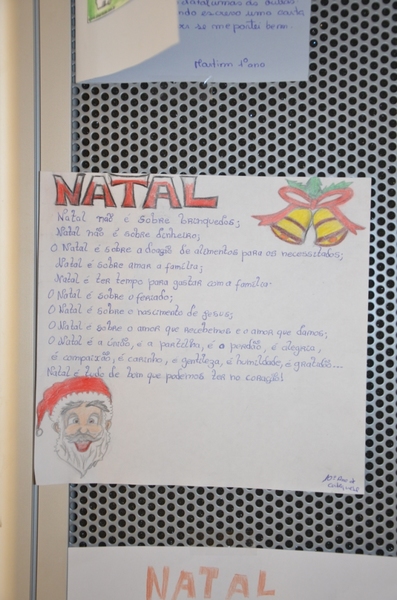 uma carta
se me portei bem
Martim 1º ano
NATAL
Natal não é sobre brinquedos;
Natal não é sobre dinheiro;
O Natal é sobre a doação de alimentos para os necessitados;
Natal é sobre amar a família;
Natal é ter tempo para gastar com a família.
O Natal é sobre o feriado;
O Natal é sobre o nascimento de Jesus;
O Natal é sobre o amor que recebemos e o amor que damos;
O Natal é a união, é a partilha, é o perdão, é alegria,
é compaixão, é carinho, é gentileza, é humildade, é gratidão...
Natal é tudo de bom que podemos ter no coração!
NATAL